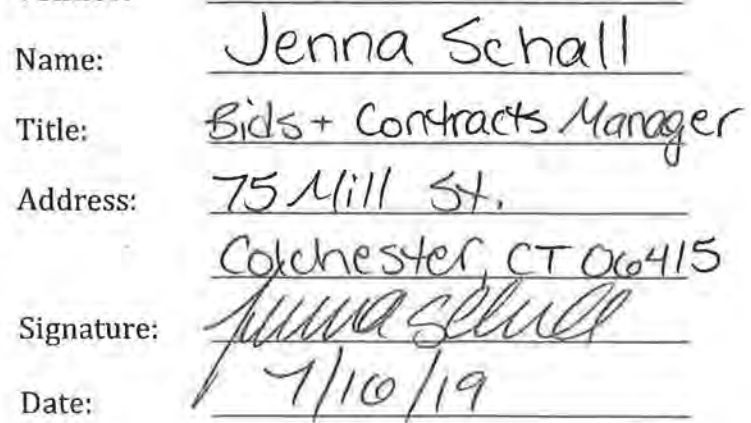 Name: Jenna Schall
Title: Bids + Contracts Manager
Address: 75 Mill St.
Colchester, CT 06415
Signature: Jenna Schall
Date: